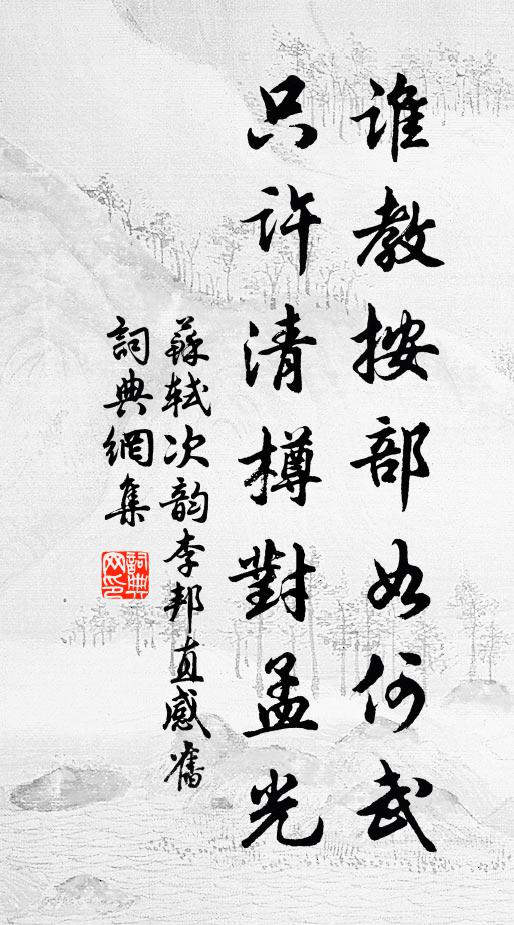 誰教按部如何武
只許清樽對孟光
蘇軾次韵李邦直感舊
詞典網集
詞典網印